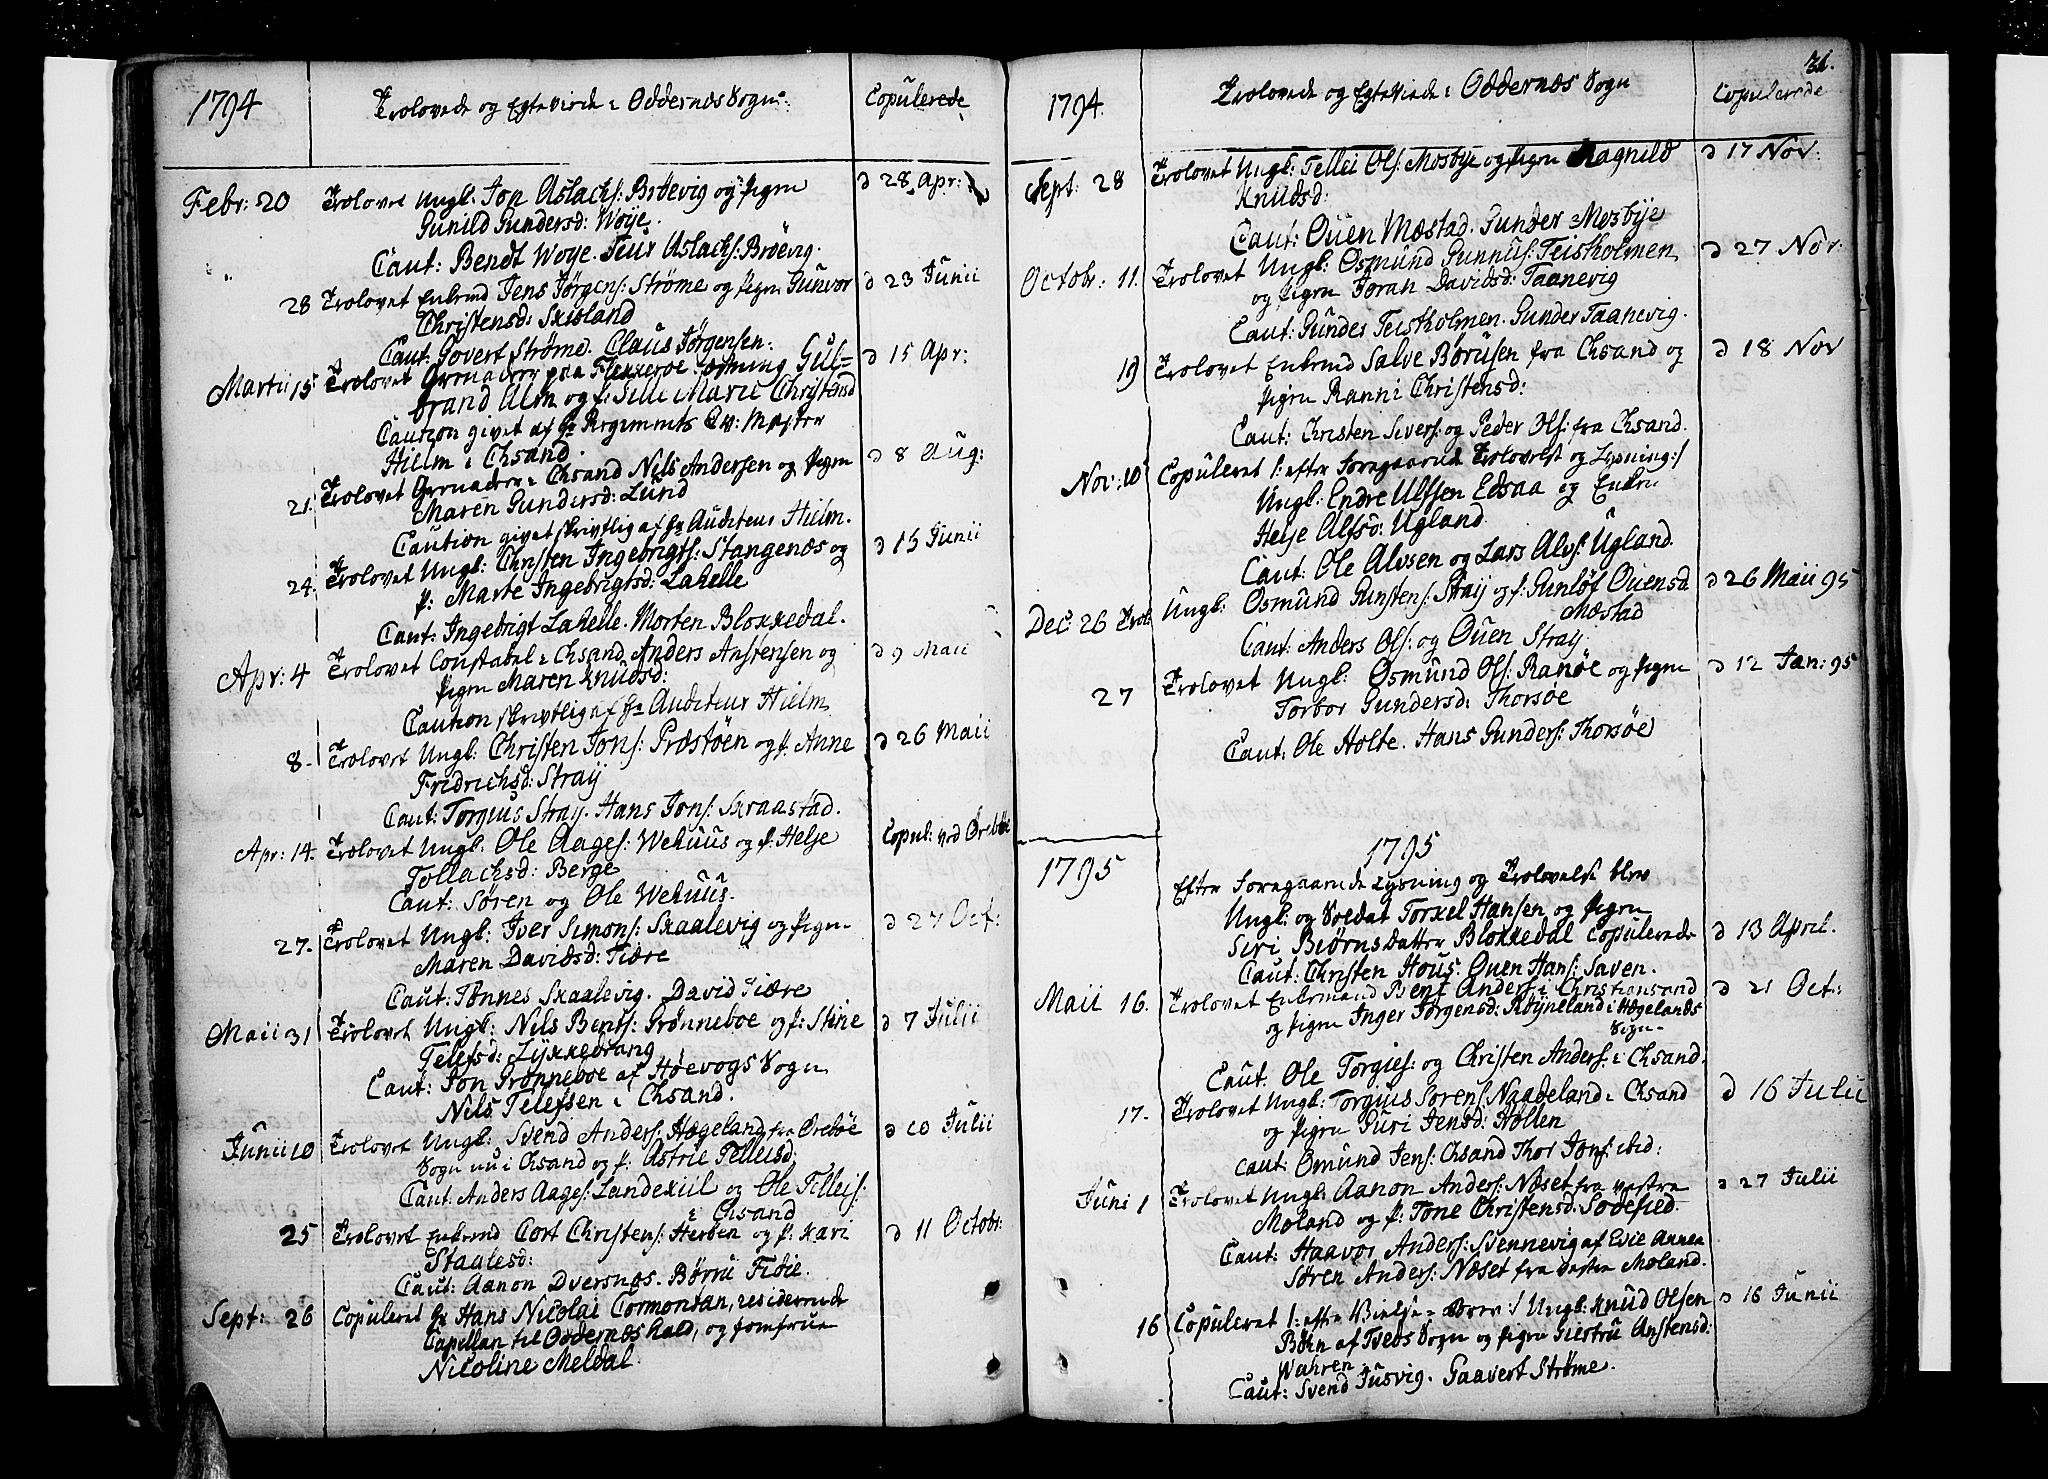 1794
Trolovede og Egteviede i Oddernæs Sogn:
Copulerede
Febr: 20 Trolovet Ungk. Jon Aslachs: Bröevig og Pigen d 28 Apr:
Gunild Gundersd: Woye.
Caut: Bendt Woye. Teur Aslachs: Bröevig.
28 Trolovet Enkemd Jens Jörgens: Ströme og Pigen Gunvor d 23 Junii
Christensd: Skisland
Caut: Govert Ströme. Claus Jörgensen.
Martii 15 Trolovet Grenadeer paa Flekkeröe Fæstning Gul- d 15 Apr:
brand Alm og p: Sille Marie Christensd
Caution givet af Hr Regiments Qv: Mester
Hielm i Chsand.
21. Trolovet Grenadeer i Chsand Nils Andersen og Pigen d 8 Aug:
Maren Gundersd: Lund
Caution givet skrivtlig af Hr Auditeur Hielm.
24. Trolovet Ungk: Christen Ingebrigts: Stangenæs og d 15 Junii
p: Marte Ingebrigtsd: Lahelle
Caut: Ingebrigt Lahelle. Morten Blokkedal.
Apr: 4 Trolovet Constabel i Chsand Anders Anstensen og d 9 Maii
Pigen Maren Knudsd:
Caution skrivtlig af Hr Auditeur Hielm
8- Trolovet Ungk: Christen Jons: Præstöen og p: Anne d 26 Maii
Fridrichsd: Straÿ
Caut: Torgius Straÿ. Hans Jons: Skraastad.
Apr: 14. Trolovet Ungk. Ole Aages: Wehuus og p: Helje Copul: ved Öreböe
Tollachsd: Berge
Caut: Sören og Ole Wehuus.
27. Trolovet Ungk: Iver Simons: Skaalevig og Pigen d 27 Oct:
Maren Davidsd: Tiære
Caut: Tönnes Skaalevig. David Tiære
Maii 31 Trolovet Ungk: Nils Bents: Grönneboe og p: Stine d 7 Julii
Telefsd: Lykkedrang
Caut: Jon Grönneboe af Höevogs Sogn
Nils Telefsen i Chsand.
Junii 10 Trolovet Ungk: Svend Anders: Hægeland fra Öreböe d 10 Julii
Sogn nu i Chsand og p: Astrie Telleisd:
Caut: Anders Aages: Landekiil og Ole Tilleis:
i Chsand
25 Trolovet Enkemd Cort Christens: Herben og p: Kari d 11 Octobr:
Staalesd:
Caut: Aanon Dversnæs. Börru Fidie.
Sept: 26 Copuleret Hr Hans Nicolai Cormontan, residerende
Capellan til Oddernæs Kald, og Jomfrue
Nicoline Meldal.
31.
1794.
Trolovede og Egteviede i Oddernæs Sogn
Copulerede
Sept: 28 Trolovet Ungk: Tellei Ols: Mosbye og Pigen Ragnild d 17 Nov:
Knudsd:
Caut: Ouen Mæstad. Gunder Mosbye
Octobr: 11. Trolovet Ungk: Osmund Gunnus: Teistholmen d 27 Nov:
og Pigen Joran Davidsd: Taanevig
Caut: Gunder Teistholmen. Gunder Taanevig.
19 Trolovet Enkemd Salve Börusen fra Chsand og d 18 Nov
Pigen Ranni Christensd:
Caut: Christen Sivers: og Peder Ols: fra Chsand.
Nov: 10 Copuleret /: efter foregaaende Trolovelse og Lysning:/
Ungk: Endre Ulfsen Edsaa og Enken
Helje Alfsd: Ugland
Caut: Ole Alvsen og Lars Alvs: Ugland.
Dec: 26 Trol: Ungk: Osmund Gunstens: Straij og p: Gunlöf Ouensd d 26 Maii 95
Mæstad
Caut: Anders Ols: og Ouen Straij
27 Trolovet Ungk: Osmund Ols: Ranöe og Pigen d 12 Jan: 95
Torbor Gundersd: Thorsöe
Caut: Ole Holte. Hans Gunders: Thorsöe
1795
1795
Efter foregaaende Lysning og Trolovelse blev
Ungk: og Soldat Torkel Hansen og Pigen
Siri Biörns Datter Blokkedal Copulerede d 13 April.
Caut: Christen Hous. Ouen Hans: Saven.
Maii 16. Trolovet Enkemand Bent Anders: i Christiansand d 21 Oct:
og Pigen Inger Jörgensd: Röyneland i Hægelands
Sogn-
Caut. Ole Torgies: og Christen Anders: i Chsand.
17. Trolovet Ungk: Torgius Sörens: Naadeland i Chsand d 16 Julii
og Pigen Guri Jensd: Hollen
Caut: Omund Jens: Chsand Thor Jons: ibid:
Juni 1 Trolovet Ungk: Aanon Anders: Næset fra vestre d 27 Julii
Moland og p: Tone Christensd: Södefied.
Caut: Haavor Anders: Svennevig af Evie Annex
Sören Anders: Næset fra vestre Moland.
16 Copuleret /: efter Vielse-Brev:/ Ungk: Knud Olsen d 16 Junii
Börn af Tveds Sogn og Pigen Giestru Anstensd:
Wahren
Caut: Svend Justvig. Gaavert Ströme.